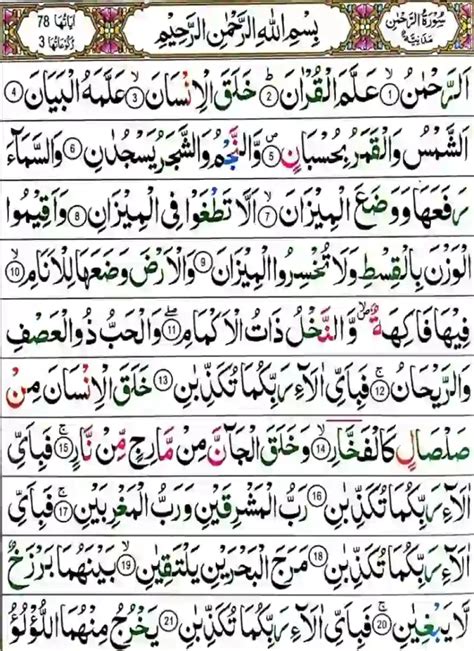 سُوْرَةُ الرَّحْمٰنِ مَدَنِيَّةٌ
بِسْمِ اللّٰهِ الرَّحْمٰنِ الرَّحِيْمِ
اٰيَاتُهَا 78
رُكُوْعَاتُهَا 3
اَلرَّحْمٰنُ ۙ﴿1﴾ عَلَّمَ الْقُرْاٰنَ ؕ﴿2﴾ خَلَقَ الْاِنْسَانَ ۙ﴿3﴾ عَلَّمَهُ الْبَيَانَ ﴿4﴾
اَلشَّمْسُ وَالْقَمَرُ بِحُسْبَانٍ ۪﴿5﴾ وَّالنَّجْمُ وَالشَّجَرُ يَسْجُدٰنِ ﴿6﴾ وَالسَّمَآءَ
رَفَعَهَا وَوَضَعَ الْمِيْزَانَ ۙ﴿7﴾ اَلَّا تَطْغَوْا فِى الْمِيْزَانِ ﴿8﴾ وَاَقِيْمُوا
الْوَزْنَ بِالْقِسْطِ وَلَا تُخْسِرُوا الْمِيْزَانَ ﴿9﴾ وَالْاَرْضَ وَضَعَهَا لِلْاَنَامِ ۙ﴿10﴾
فِيْهَا فَاكِهَةٌ ۪ۙ وَّالنَّخْلُ ذَاتُ الْاَكْمَامِ ۖ﴿11﴾ وَالْحَبُّ ذُو الْعَصْفِ
وَالرَّيْحَانُ ۚ﴿12﴾ فَبِاَىِّ اٰلَآءِ رَبِّكُمَا تُكَذِّبٰنِ ﴿13﴾ خَلَقَ الْاِنْسَانَ مِنْ
صَلْصَالٍ كَالْفَخَّارِ ۙ﴿14﴾ وَخَلَقَ الْجَآنَّ مِنْ مَّارِجٍ مِّنْ نَّارٍ ۚ﴿15﴾ فَبِاَىِّ
اٰلَآءِ رَبِّكُمَا تُكَذِّبٰنِ ﴿16﴾ رَبُّ الْمَشْرِقَيْنِ وَرَبُّ الْمَغْرِبَيْنِ ۚ﴿17﴾ فَبِاَىِّ
اٰلَآءِ رَبِّكُمَا تُكَذِّبٰنِ ﴿18﴾ مَرَجَ الْبَحْرَيْنِ يَلْتَقِيٰنِ ۙ﴿19﴾ بَيْنَهُمَا بَرْزَخٌ
لَّا يَبْغِيٰنِ ۚ﴿20﴾ فَبِاَىِّ اٰلَآءِ رَبِّكُمَا تُكَذِّبٰنِ ﴿21﴾ يَخْرُجُ مِنْهُمَا اللُّؤْلُؤُ